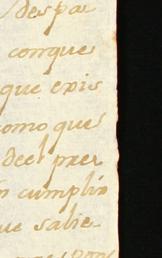 despa
conque
que exis
como que
deel prer
cumplir
ue salie